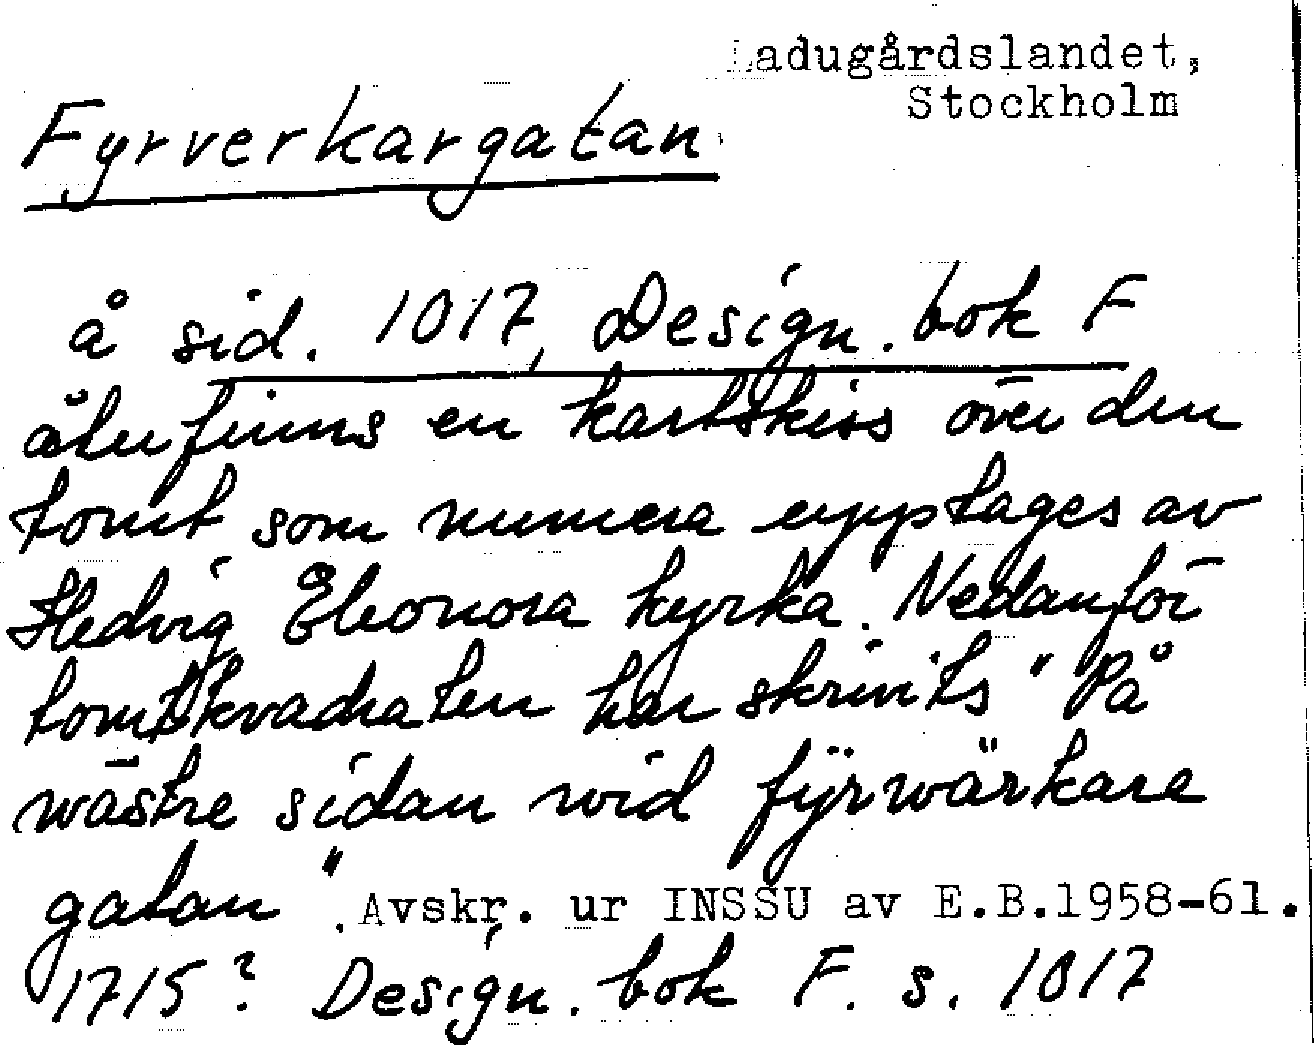 Ladugårdslandet,
Stockholm
Fyrverkargatan
å sid. 1017, Design. bok F
åter finns en kartskiss över den
tomt som numera upptages av
Hedvig Eleonora kyrka. Nedanför
tomtkvadraten har skrivits "På
wästre sidan wid fÿrwärkare
gatan". Avskr. ur INSSU av E.B.1958-61.
1715? Design. bok F. s. 1017